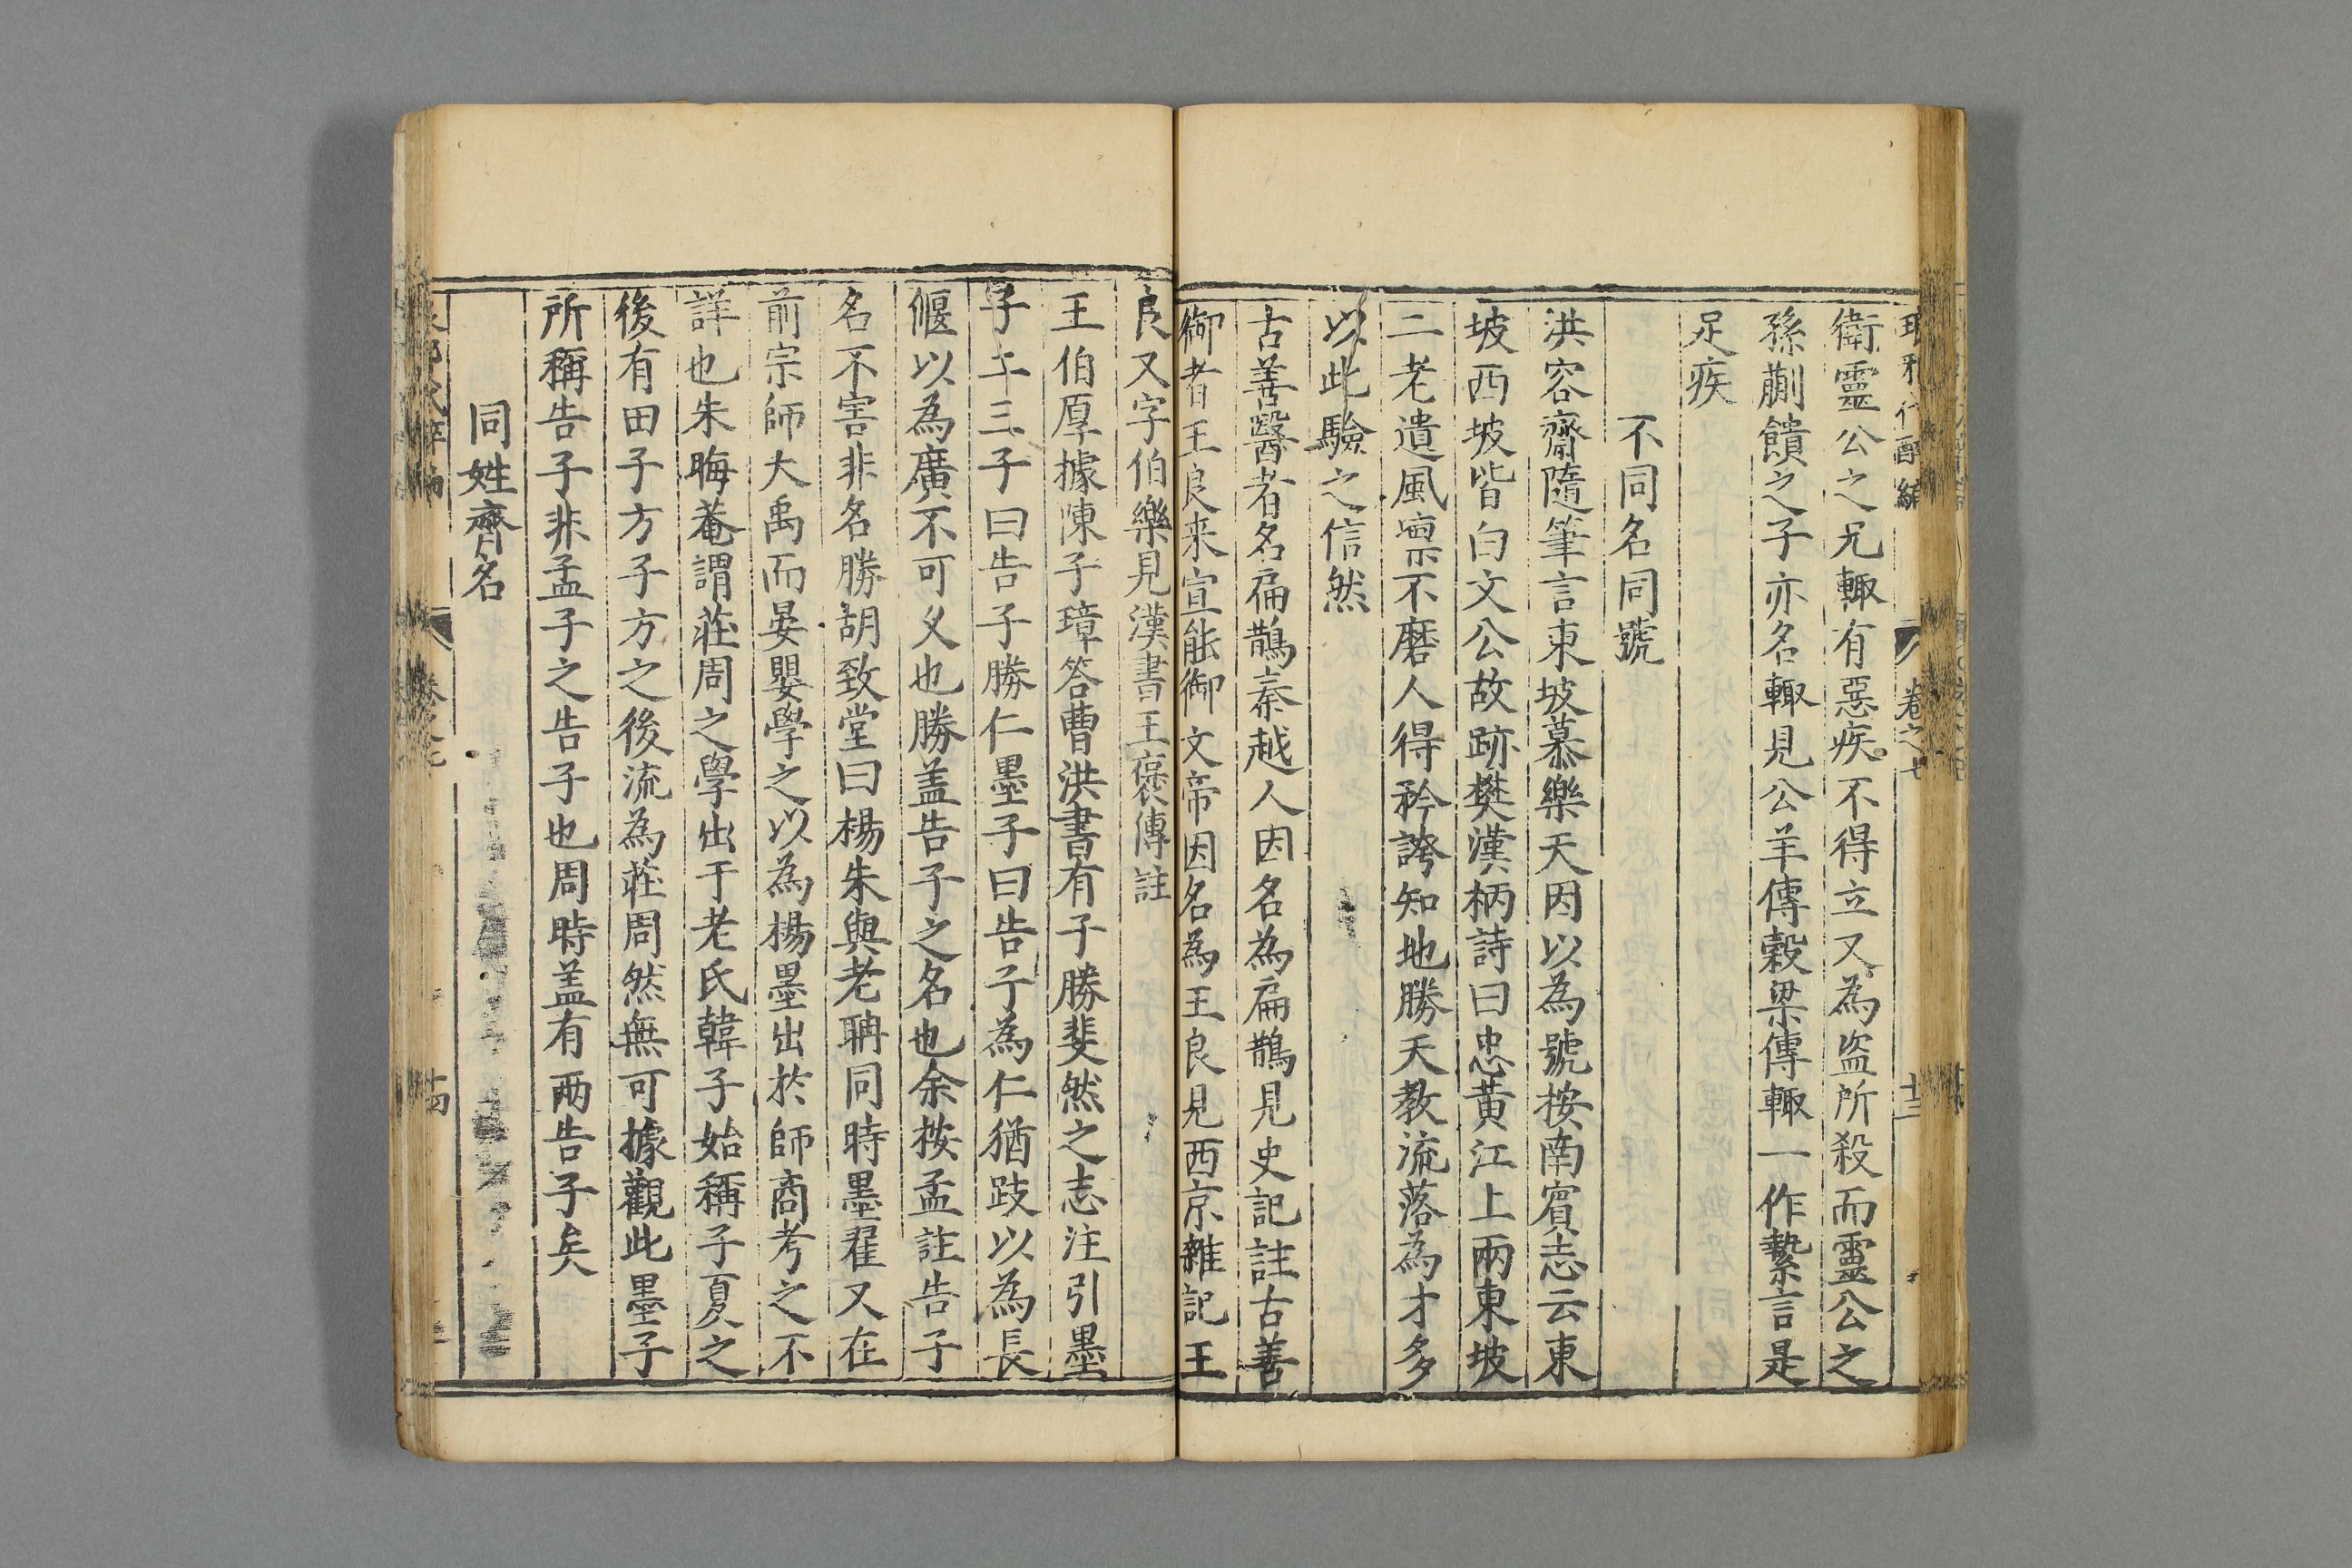 琅邪代醉編 卷之七 十三
衛靈公之兄輙有惡疾不得立又為盗所殺而靈公之
孫蒯饋之子亦名輙見公羊傳榖梁傳輙一作縶言是
足疾
不同名同號
洪容齋隨筆言東坡慕樂天因以為號按南賓志云東
坡西坡皆白文公故跡樊漢柄詩曰忠黄江上兩東坡
二老遺風凛不磨人得矜誇知地勝天教流落為才多
以此驗之信然
古善醫者名扁鵲秦越人因名為扁鵲見史記註古善
御者王良来宣能御文帝因名為王良見西京雜記王
良又字伯樂見漢書王褒傳註
王伯厚據陳子璋答曹洪書有子勝斐然之志注引墨
子二三子曰告子勝仁墨子曰告子為仁猶跂以為長
偃以為廣不可乆也勝盖告子之名也余按孟註告子
名不害非名勝胡致堂曰楊朱與老聃同時墨翟又在
前宗師大禹而晏嬰學之以為楊墨出於師商考之不
詳也朱晦菴謂莊周之學出于老氏韓子始稱子夏之
後有田子方子方之後流為莊周然無可據觀此墨子
所稱告子非孟子之告子也周時盖有兩告子矣
同姓齊名